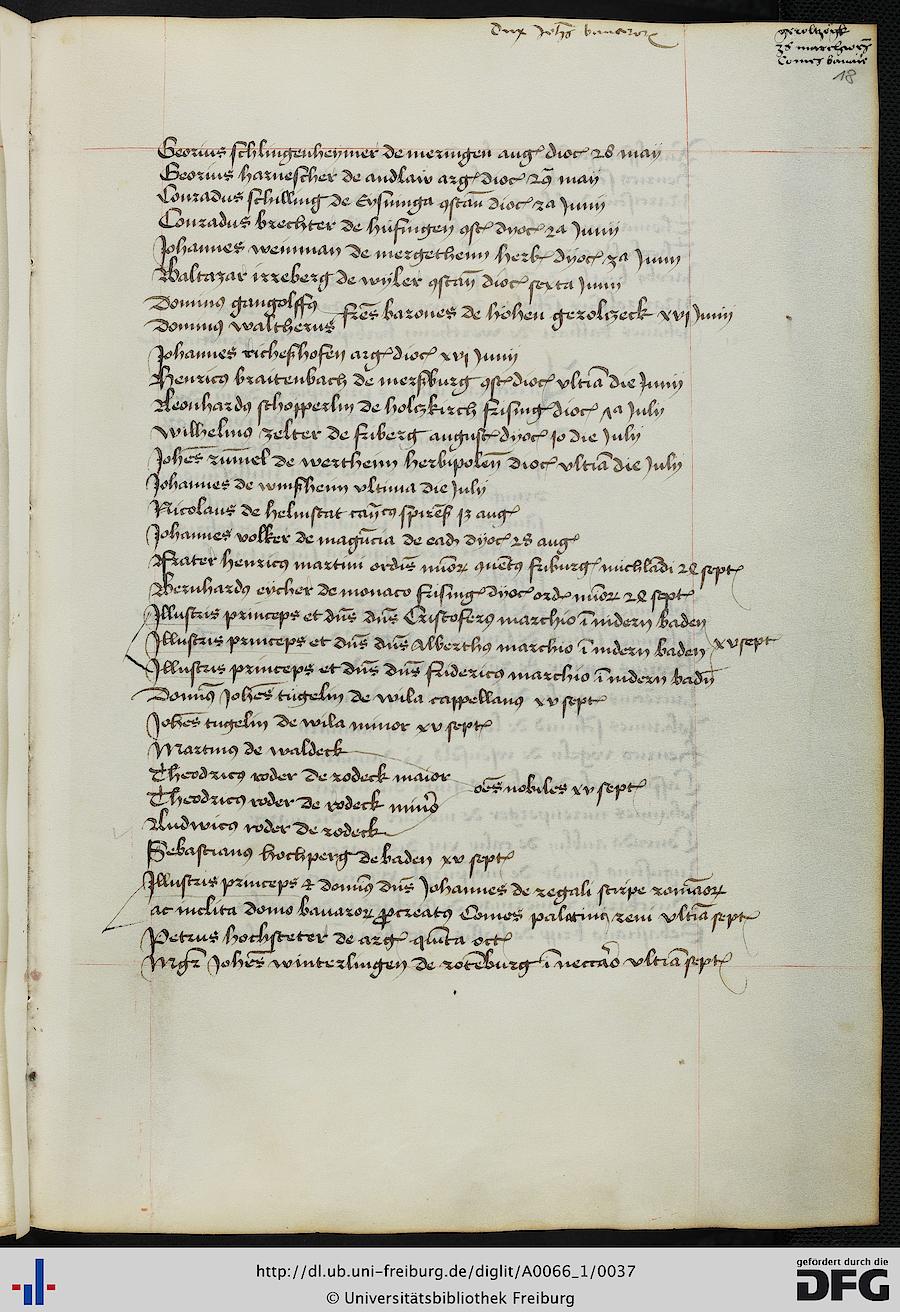 Dux Johēs bavarorꝝ
geroltzegk
3s marchioēs
Comes bavarie
18
Georius schlingenheymer de meringen aug dioc 28 may
Georius harnescher de andlaw arg dioc 29 may
Conradus schilling de Eysininga ꝯstan̄ dioc 2a Junij
Conradus brechter de hüfingen ꝯst dyoc 2a Junij
Johannes weinman de mergetheim herb dyoc 3a Junij
Baltazar irreberg de wyler ꝯstan̄ dioc sexta Junij
Dominus gangolffus
Dominus waltherus
fres barones de hohen geroltzeck xvj Junij
Johannes richeshofen arg dioc xvj Junij
Henricus braitenbach de mersburg ꝯst dioc ultīa die Junij
Leonhardus schopperlin de holczkirch frising dioc xa July
Wilhelmus zelter de friberg august dyoc 10 die July
Johēs rümel de wertheim herbipolen̄ dioc ultīa die July
Johannes de winsheim ultima die July
Nicolaus de helmstat can̄cus spiren̄ 13 aug
Johannes volker de magūcia de ead dyoc 28 aug
Frater henricus martini ordīs mīor ꝯuentus friburg 22 sept
Bernhardus eycher de monaco frising dyoc ord mīor 22 sept
Illustris princeps et dn̄s dn̄s Cristoferus marchio ī nidern baden
Illustris princeps et dn̄s dn̄s Alberthus marchio ī nidern baden xv sept
Illustris princeps et dn̄s dn̄s fridericus marchio ī nidern badn̄
Domīus Johēs tügelin de wila cappellanus xv sept
Johēs tügelin de wila minor xv sept
Martinus de waldeck
Theodricus roder de rodeck maior
Theodricus roder de rodeck minor
Ludwicus roder de rodeck
oēs nobiles xv sept
Sebastianus hochperg de baden xv sept
Illustris princeps & domīs dn̄s Johannes de regali stirpe romāorꝝ
ac inclita domo bavarorꝝ ꝓcreatus Comes palatinus reni ultīa sept
Petrus hochsteter de arg quīta oct
Mgr̄ Johēs winterlingen de rotēburg ī neccaro ultīa sept
http://dl.ub.uni-freiburg.de/diglit/A0066_1/0037
© Universitätsbibliothek Freiburg
gefördert durch die
DFG